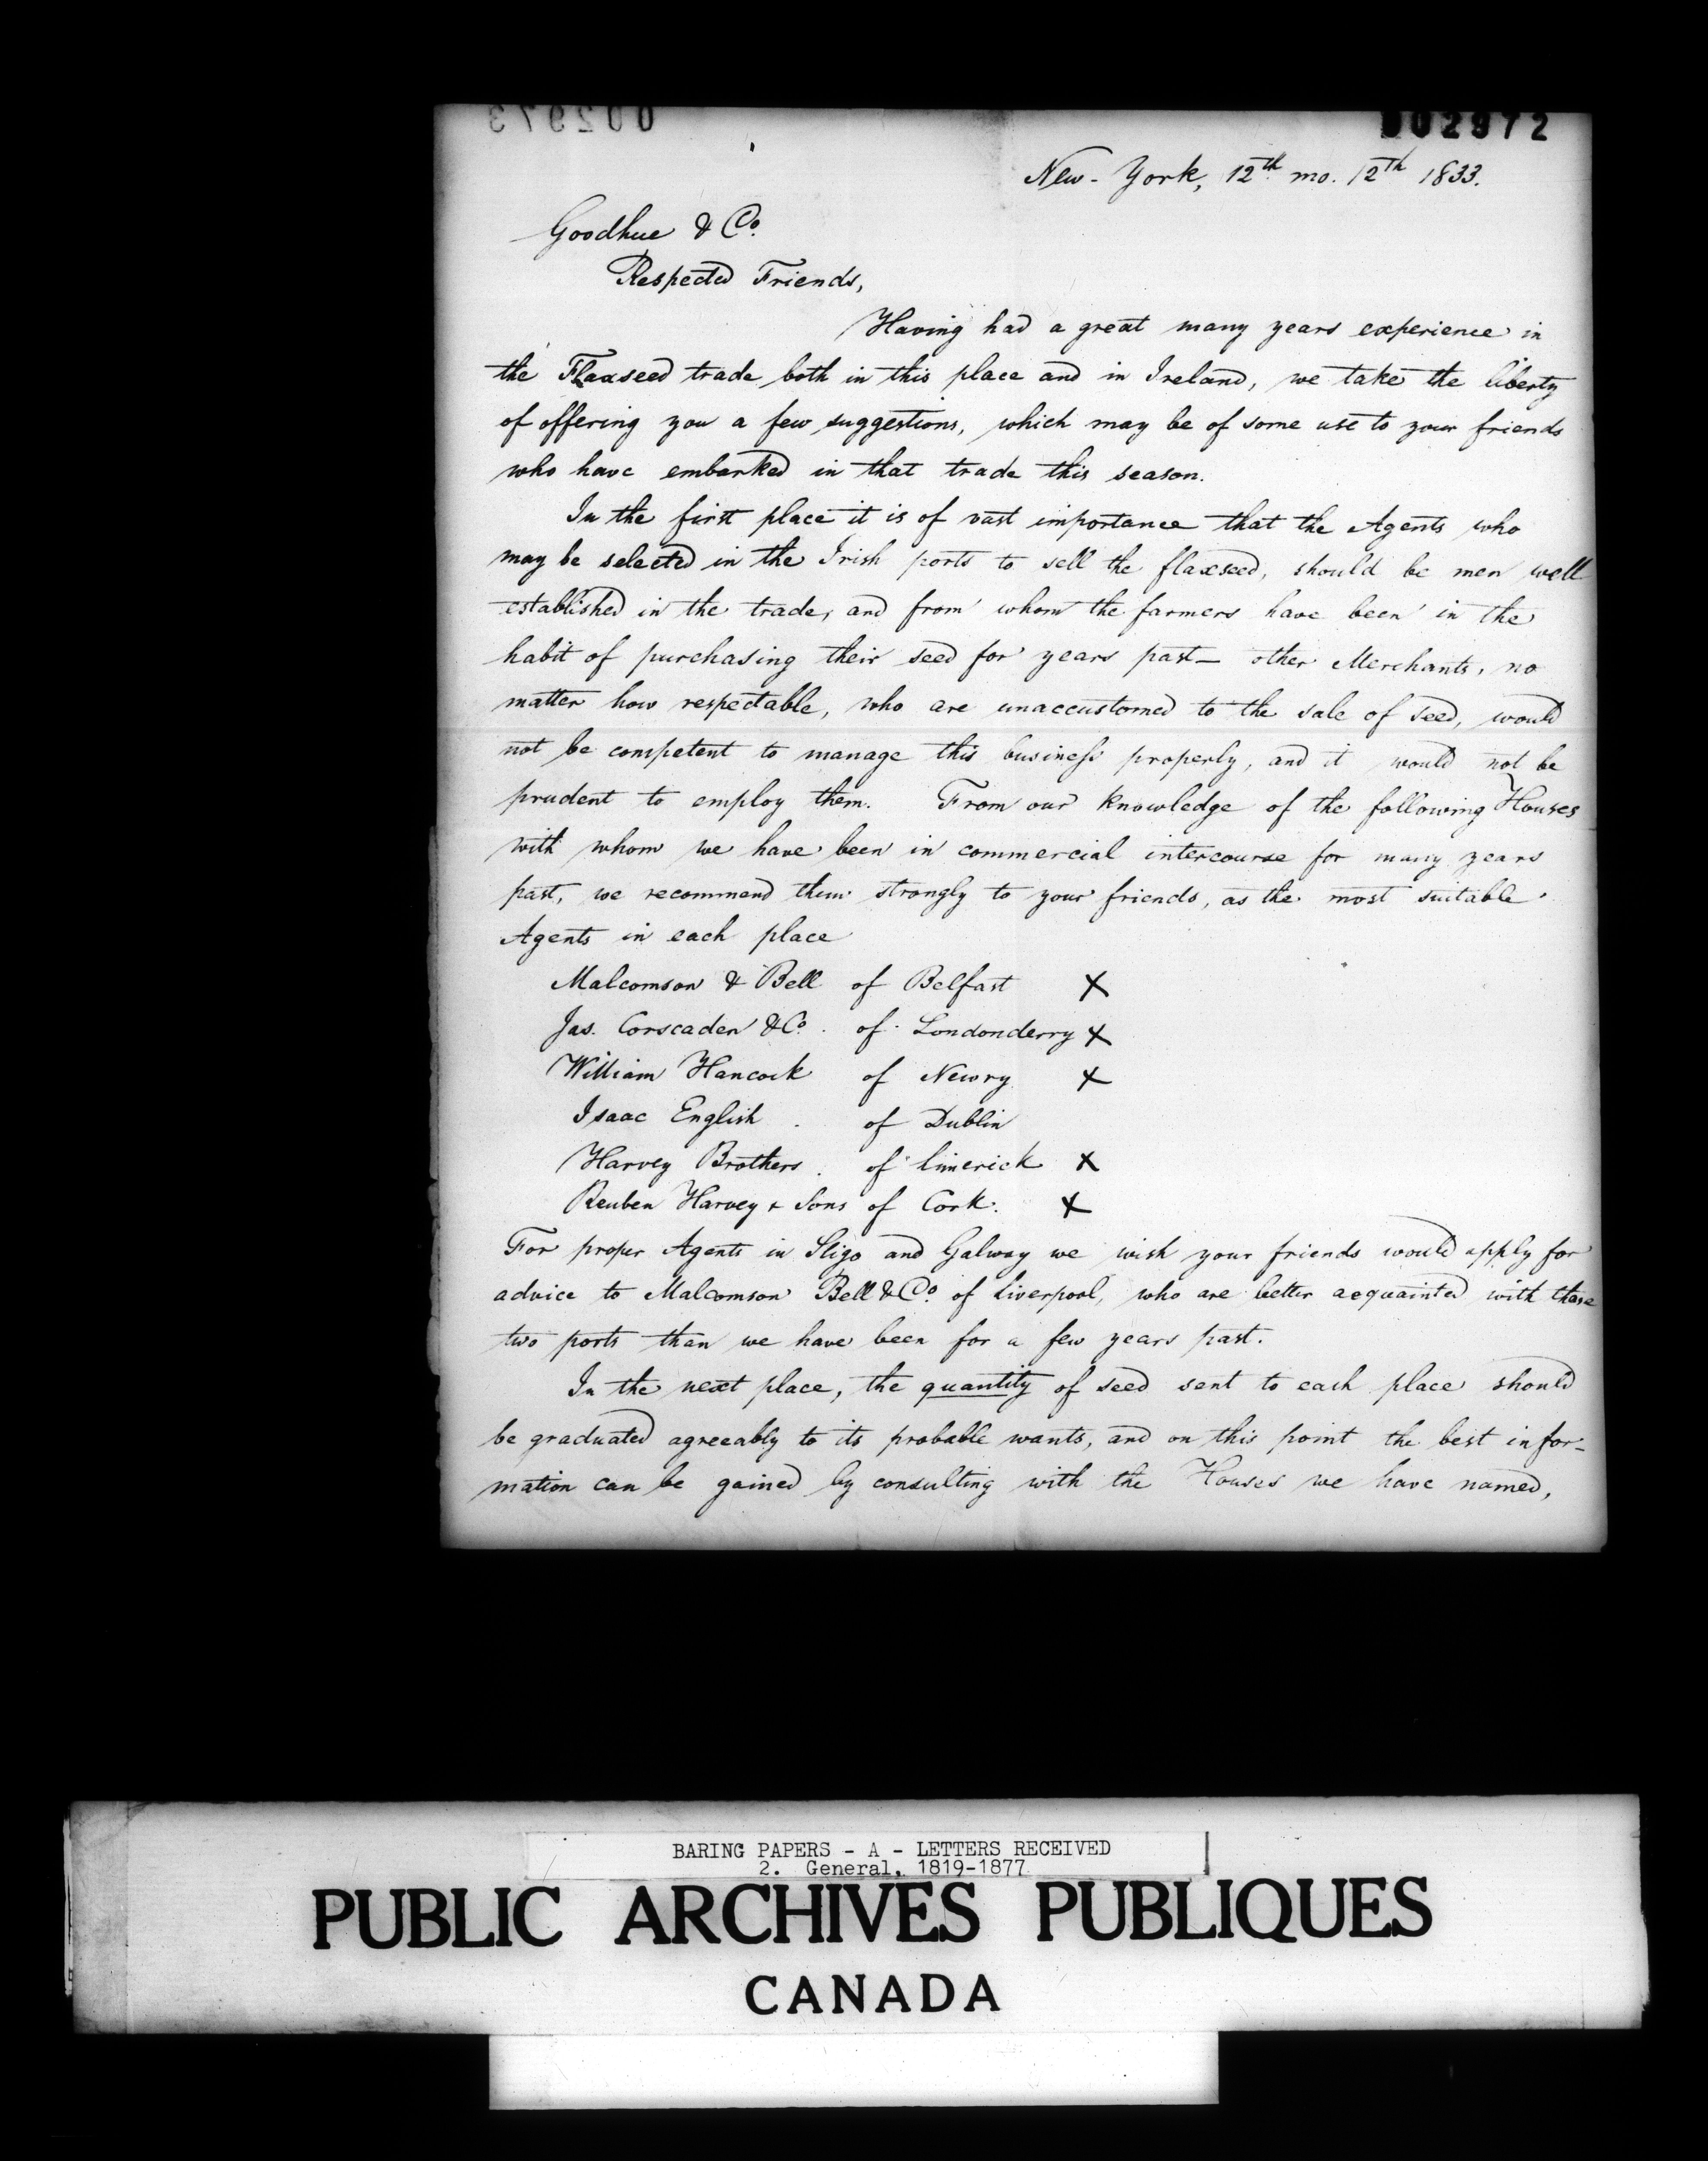 002973
002972
New-York, 12th mo. 12th 1833.
Goodhue & Co.
Respected Friends,
Having had a great many years experience in
the Flaxseed trade both in this place and in Ireland, we take the liberty
of offering you a few suggestions, which may be of some use to your friends
who have embarked in that trade this season.
In the first place it is of vast importance that the Agents who
may be selected in the Irish ports to sell the flaxseed, should be men well
established in the trade, and from whom the farmers have been in the
habit of purchasing their seed for years past— other Merchants, no
matter how respectable, who are unaccustomed to the sale of seed, would
not be competent to manage this business properly, and it would not be
prudent to employ them. From our knowledge of the following Houses
with whom we have been in commercial intercourse for many years
past, we recommend them strongly to your friends, as the most suitable
Agents in each place
Malcomson & Bell of Belfast X
Jas. Corscaden & Co. of Londonderry X
William Hancock of Newry X
Isaac English of Dublin
Harvey Brothers of Limerick X
Reuben Harvey & Sons of Cork. X
For proper Agents in Sligo and Galway we wish your friends would apply for
advice to Malcomson Bell & Co. of Liverpool, who are better acquainted with those
two ports than we have been for a few years past.
In the next place, the quantity of seed sent to each place should
be graduated agreeably to its probable wants, and on this point the best infor-
mation can be gained by consulting with the Houses we have named,
BARING PAPERS - A - LETTERS RECEIVED
2. General, 1819-1877
PUBLIC ARCHIVES PUBLIQUES
CANADA